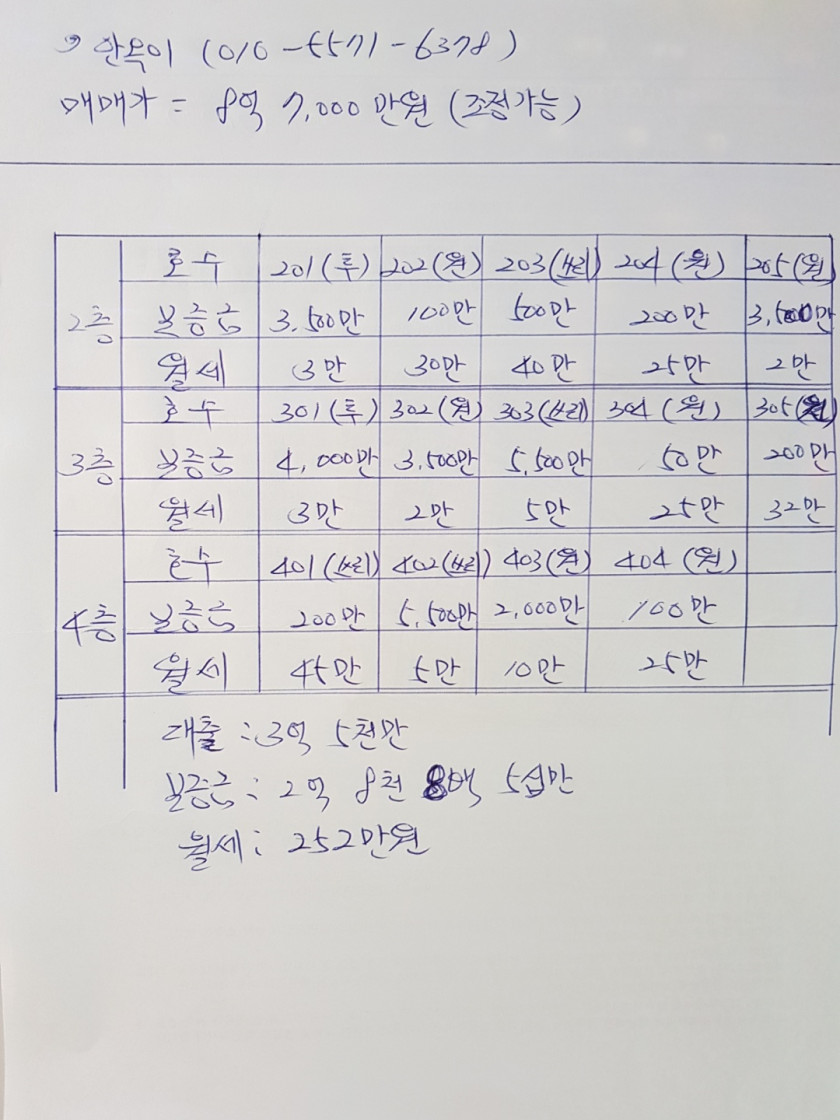 안옥이 (010-5571-6378)
매매가 = 8억 7,000만원 (조정가능)
2층
호수 201(투) 202(원) 203(쓰리) 204(원) 205(원)
보증금 3,500만 100만 500만 200만 3,500만
월세 3만 30만 40만 25만 2만
3층
호수 301(투) 302(원) 303(쓰리) 304(원) 305(원)
보증금 4,000만 3,500만 5,500만 50만 200만
월세 3만 2만 5만 25만 32만
4층
호수 401(쓰리) 402(쓰리) 403(원) 404(원)
보증금 200만 5,500만 2,000만 100만
월세 45만 5만 10만 25만
대출 : 3억 5천만
보증금 : 2억 8천 8백 5십만
월세 : 252만원